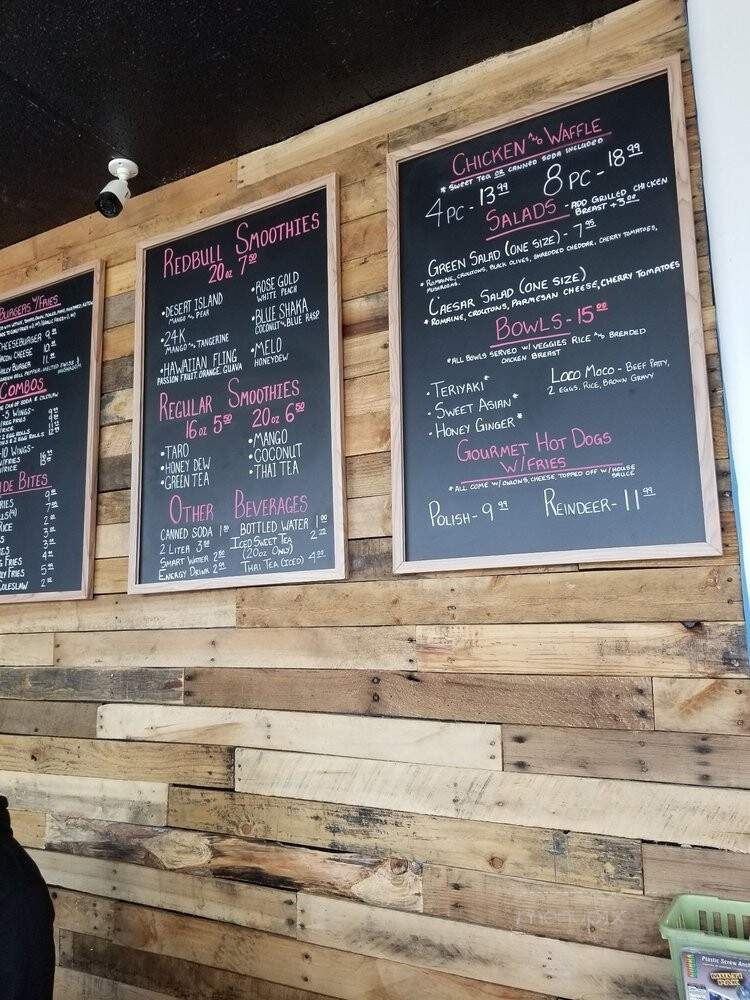 BURGERS W/FRIES
CHEESEBURGER 9
BACON CHEESE 10
PHILLY BURGER 11
COMBOS
-5 WINGS-
2 EGG ROLLS
-10 WINGS-
W/FRIES
W/RICE
SIDE BITES
FRIES
RICE
FRIES
COLESLAW 2
REDBULL SMOOTHIES
20oz 7.50
•DESERT ISLAND
MANGO AND PEAR
•24K
MANGO AND TANGERINE
•HAWAIIAN FLING
PASSION FRUIT, ORANGE, GUAVA
•ROSE GOLD
WHITE PEACH
•BLUE SHAKA
COCONUT AND BLUE RASP
•MELO
HONEYDEW
REGULAR SMOOTHIES
16oz 5.50 20oz 6.50
•TARO
•HONEY DEW
•GREEN TEA
•MANGO
•COCONUT
•THAI TEA
OTHER BEVERAGES
CANNED SODA 1.50
2 LITER 3.50
SMART WATER 2.00
ENERGY DRINK 2.00
BOTTLED WATER 1.00
ICED SWEET TEA 2.00
(20oz ONLY)
THAI TEA (ICED) 4.00
CHICKEN AND WAFFLE
* SWEET TEA OR CANNED SODA INCLUDED
4PC- 13.99 8PC- 18.99
SALADS - ADD GRILLED CHICKEN
BREAST +3.00
GREEN SALAD (ONE SIZE)- 7.95
*ROMAINE, CROUTONS, BLACK OLIVES, SHREDDED CHEDDAR, CHERRY TOMATOES,
MUSHROOMS.
CAESAR SALAD (ONE SIZE)
*ROMAINE, CROUTONS, PARMESAN CHEESE, CHERRY TOMATOES
BOWLS-15.00
*ALL BOWLS SERVED W/ VEGGIES RICE AND BREADED
CHICKEN BREAST
•TERIYAKI*
•SWEET ASIAN*
•HONEY GINGER*
LOCO MOCO- BEEF PATTY,
2 EGGS, RICE, BROWN GRAVY
GOURMET HOT DOGS
W/FRIES
*ALL COME W/ ONIONS, CHEESE, TOPPED OFF W/ HOUSE
SAUCE
POLISH- 9.99 REINDEER- 11.99
menupix
Plastic Screw Anc
MULTI
PAK